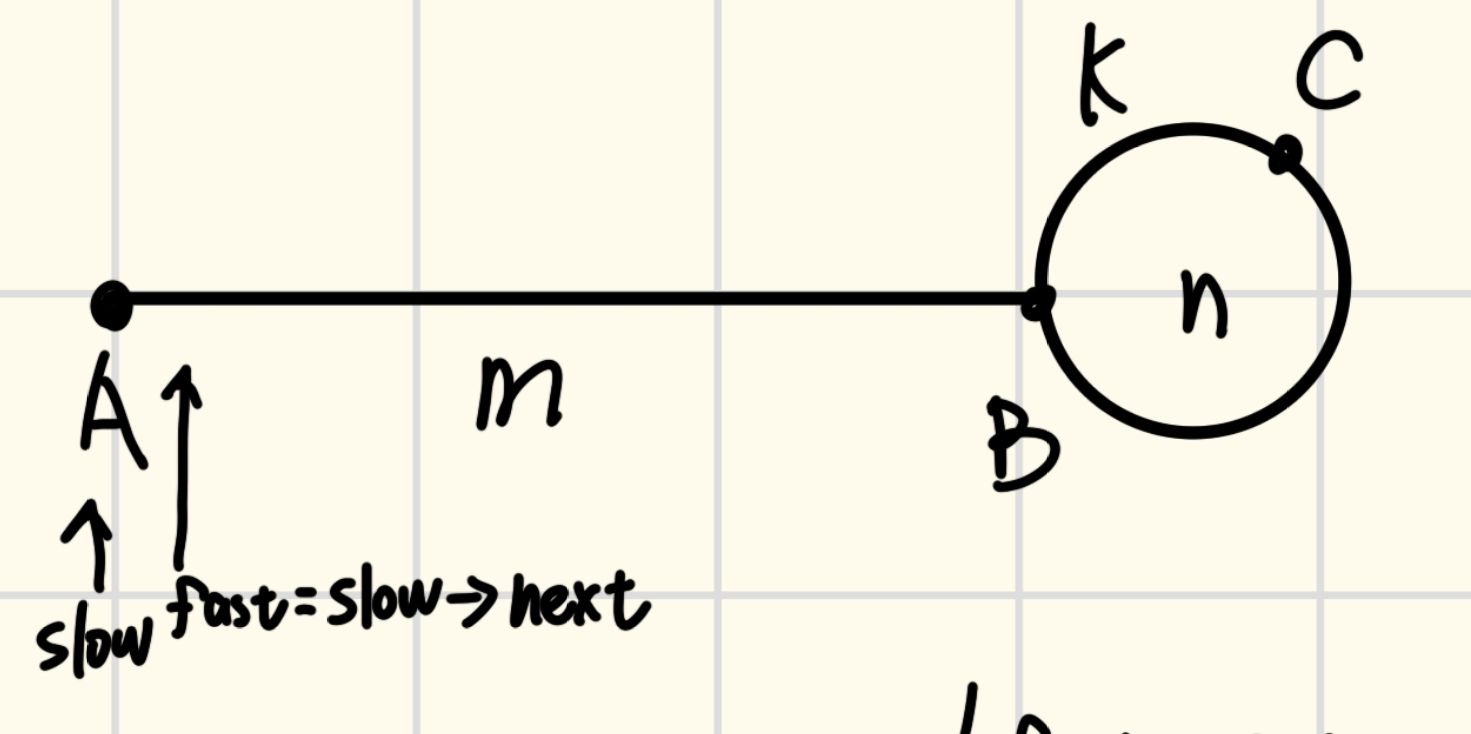 K C
n
A m B
slow fast=slow→next